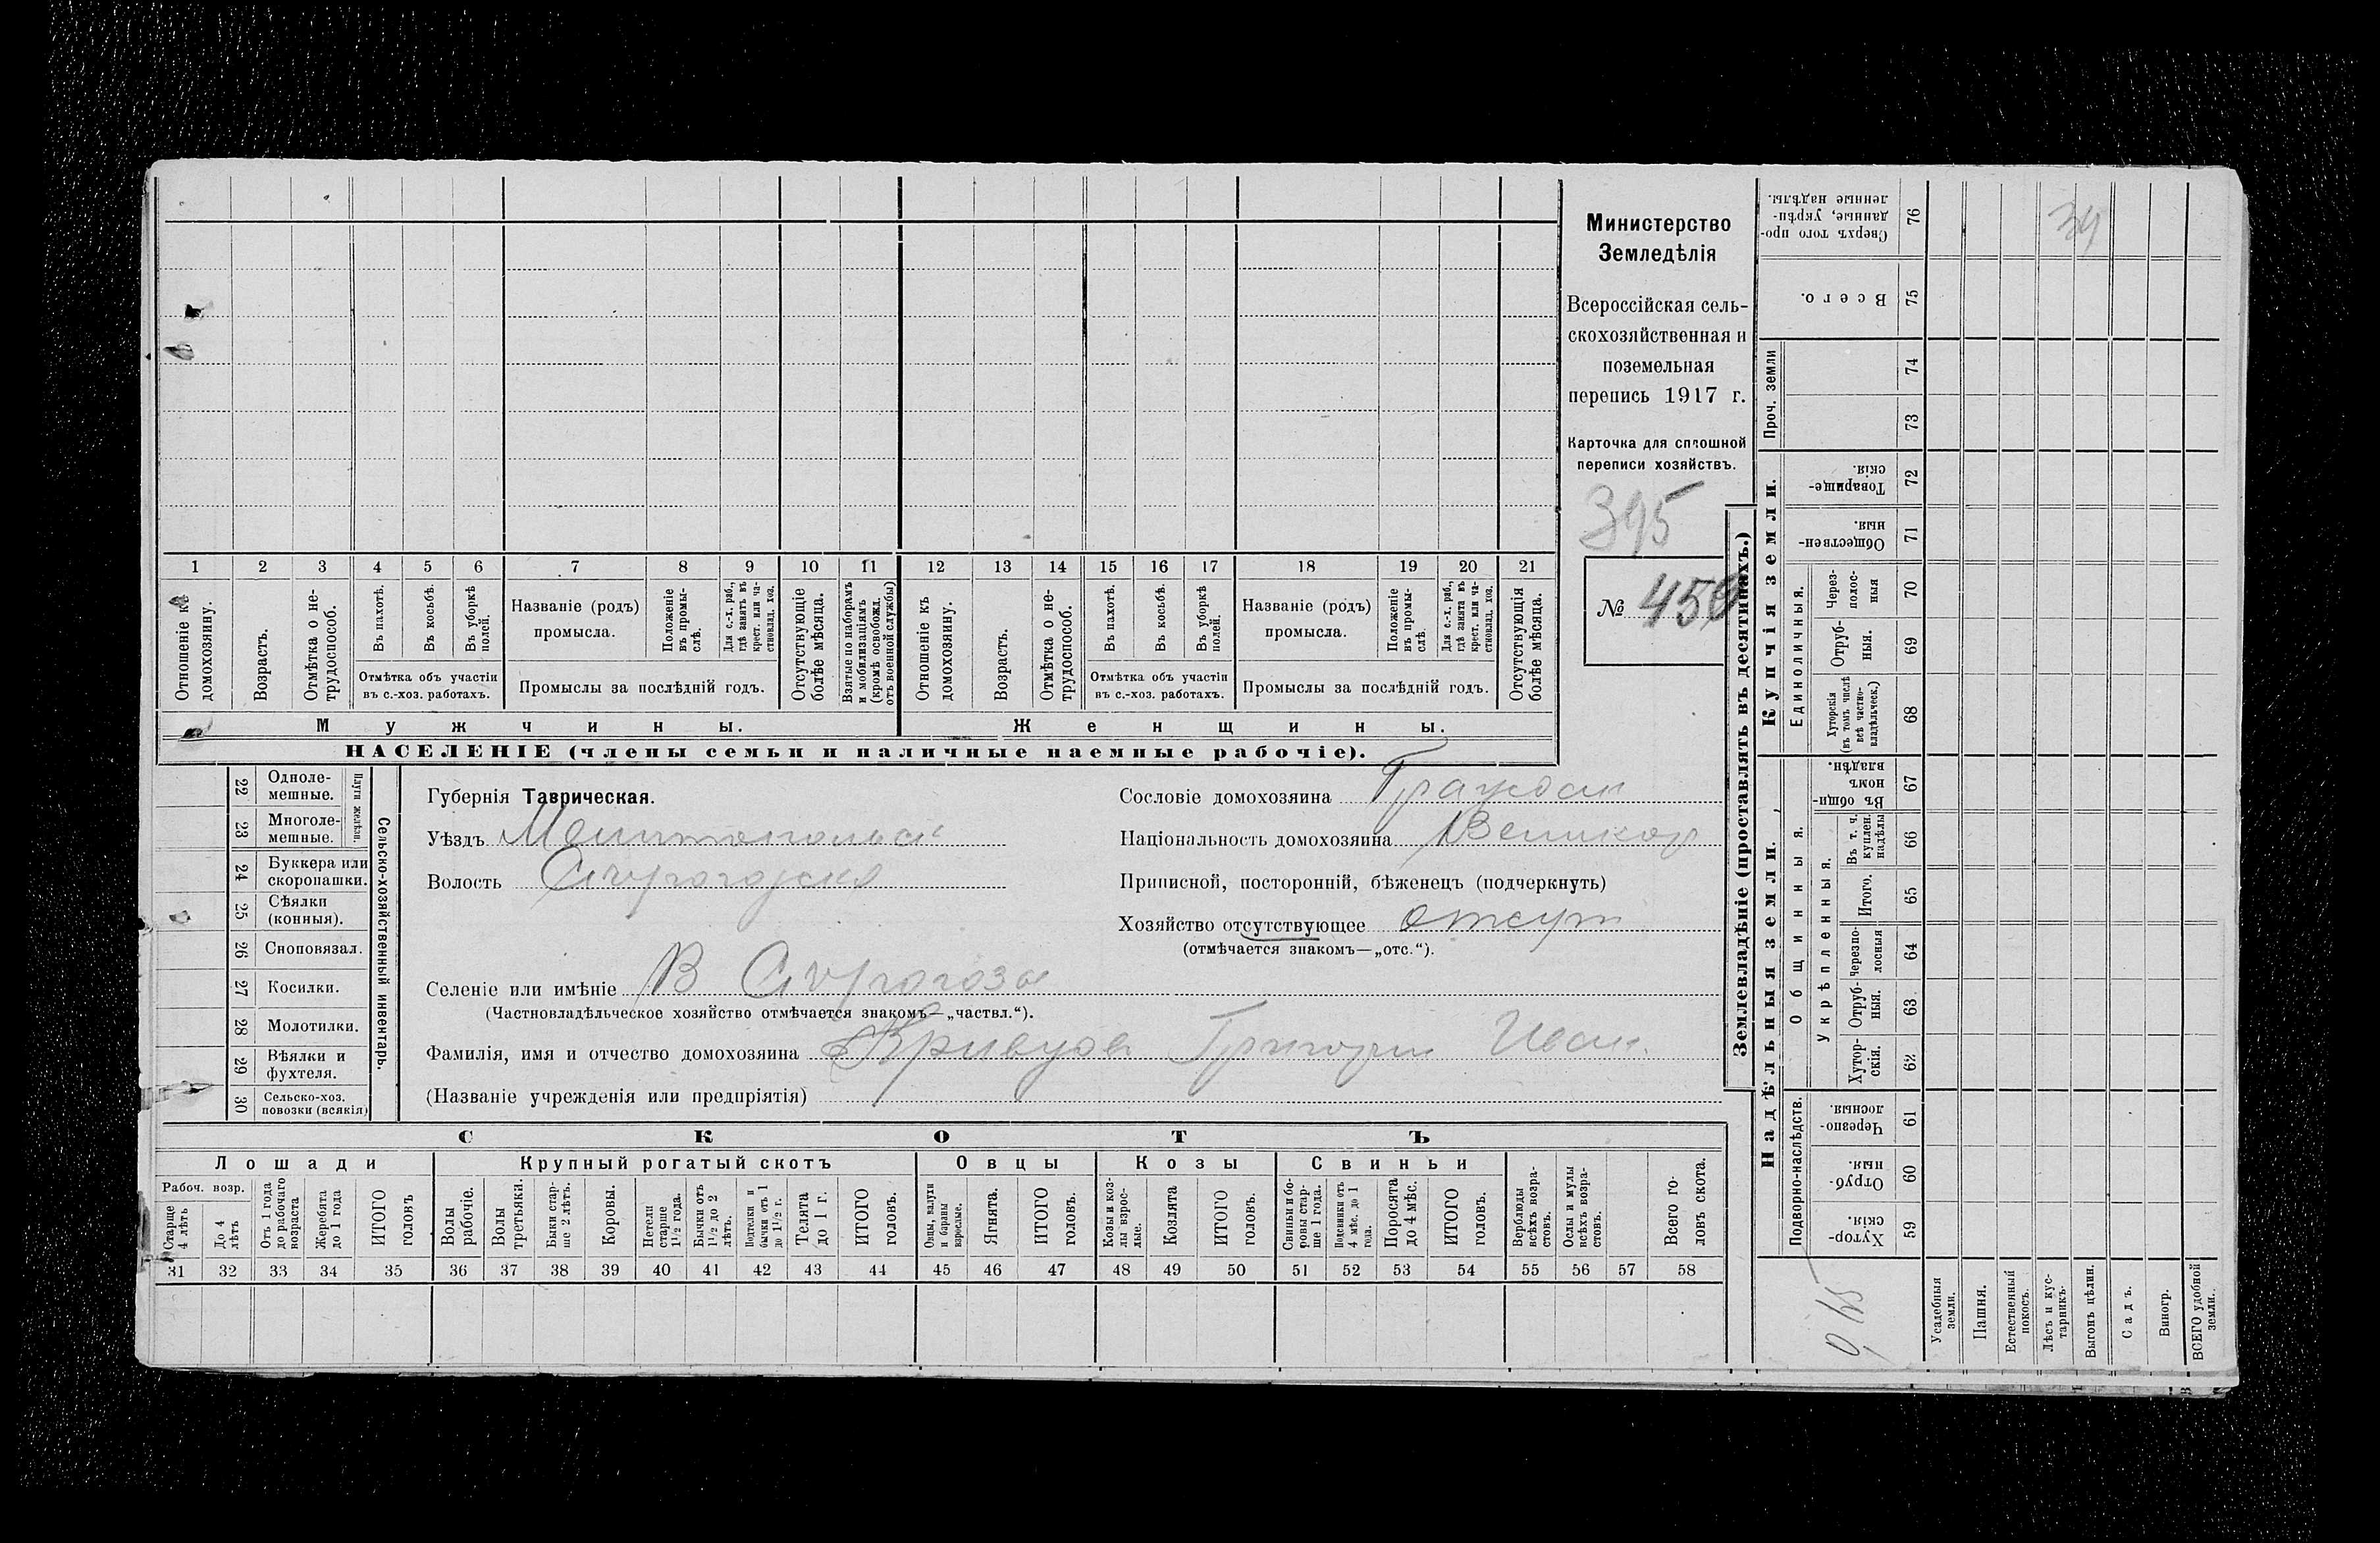 Министерство
Земледѣлія
Всероссійская сель-
скохозяйственная и
поземельная
перепись 1917 г.
Карточка для сплошной
переписи хозяйствъ.
395
№ 459
1 2 3 4 5 6 7 8 9 10 11 12 13 14 15 16 17 18 19 20 21
Отношеніе къ домохозяину.
Возрастъ.
Отмѣтка о не-трудоспособ.
Въ пахотѣ.
Въ косьбѣ.
Въ уборкѣ полей.
Отмѣтка объ участіи
въ с.-хоз. работахъ.
Названіе (родъ)
промысла.
Положеніе въ промы-слѣ.
Для с.-х. раб., гдѣ занятъ въ крест. или ча-стновлад. хоз.
Промыслы за послѣдній годъ.
Отсутствующіе болѣе мѣсяца.
Взятые по наборамъ и мобилизаціямъ (кромѣ освобожд. отъ военной службы)
Отношеніе къ домохозяину.
Возрастъ.
Отмѣтка о не-трудоспособ.
Въ пахотѣ.
Въ косьбѣ.
Въ уборкѣ полей.
Отмѣтка объ участіи
въ с.-хоз. работахъ.
Названіе (родъ)
промысла.
Положеніе въ промы-слѣ.
Для с.-х. раб., гдѣ занята въ крест. или ча-стновлад. хоз.
Промыслы за послѣдній годъ.
Отсутствующія болѣе мѣсяца.
Мужчины.
Женщины.
НАСЕЛЕНІЕ (члены семьи и наличные наемные рабочіе).
22 Одноле-мешные.
23 Многоле-мешные.
Плуги желѣзн.
24 Буккера или скоропашки.
25 Сѣялки (конныя).
26 Сноповязал.
27 Косилки.
28 Молотилки.
29 Вѣялки и фухтеля.
30 Сельско-хоз. повозки (всякія)
Сельско-хозяйственный инвентарь.
Губернія Таврическая.
Уѣздъ Мелитопольск
Волость
Сословіе домохозяина Граждан
Національность домохозяина Великор
Приписной, посторонній, бѣженецъ (подчеркнуть)
Хозяйство отсутствующее отсут
(отмѣчается знакомъ—„отс.“).
Селеніе или имѣніе В
(Частновладѣльческое хозяйство отмѣчается знакомъ—„частвл.“).
Фамилія, имя и отчество домохозяина Кривцов Григорий Иван.
(Названіе учрежденія или предпріятія)
СКОТЪ
Лошади
Крупный рогатый скотъ
Овцы
Козы
Свиньи
Рабоч. возр.
Старше 4 лѣтъ
До 4 лѣтъ
Отъ 1 года до рабочаго возраста
Жеребята до 1 года
ИТОГО головъ
Волы рабочіе.
Волы третьяки.
Быки стар-ше 2 лѣтъ.
Коровы.
Нетели старше 1½ года.
Бычки отъ 1½ до 2 лѣтъ.
Подтелки и бычки отъ 1 до 1½ г.
Телята до 1 г.
ИТОГО головъ.
Овцы, валухи и бараны взрослые.
Ягнята.
ИТОГО головъ.
Козы и коз-лы взрос-лые.
Козлята
ИТОГО головъ.
Свиньи и бо-ровы стар-ше 1 года.
Подсвинки отъ 4 мѣс. до 1 года.
Поросята до 4 мѣс.
ИТОГО головъ.
Верблюды всѣхъ возра-стовъ.
Ослы и мулы всѣхъ возра-стовъ.
Всего го-ловъ скота.
31 32 33 34 35 36 37 38 39 40 41 42 43 44 45 46 47 48 49 50 51 52 53 54 55 56 57 58
Землевладѣніе (проставлять въ десятинахъ.)
Надѣльныя земли.
Купчія земли.
Проч. земли
Подворно-наслѣдств.
Общинныя.
Укрѣпленныя.
Единоличныя.
Хутор-скія. 59
Отруб-ныя. 60
Черезпо-лосныя. 61
Хутор-скія. 62
Отруб-ныя. 63
Черезпо-лосныя 64
Итого. 65
Въ т. ч. куплен. надѣлы 66
Въ общи-номъ владѣн. 67
Хуторскія (въ томъ числѣ всѣ частно-владѣльческ.) 68
Отруб-ныя. 69
Через-полос-ныя 70
Обществен-ныя. 71
Товарище-скія. 72
73
74
Всего. 75
Сверхъ того про-данные, укрѣп-ленные надѣлы. 76
34
Усадебныя земли.
Пашня.
Естественный покосъ.
Лѣсъ и кус-тарникъ.
Выгонъ цѣлин.
Садъ.
Виногр.
ВСЕГО удобной земли.